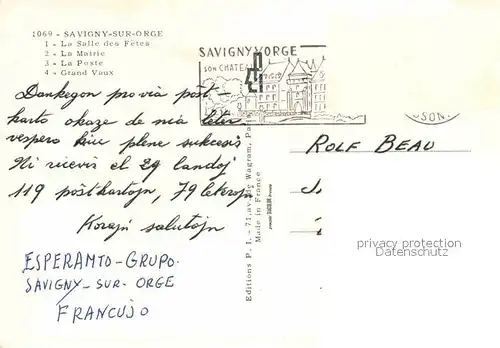 1069 - SAVIGNY-SUR-ORGE
1 - La Salle des Fêtes
2 - La Mairie
3 - La Poste
4 - Grand Vaux
SAVIGNY S/ORGE
SON CHATEAU
Dankegon pro via pôst-
karto okaze de nia leter-
vespero kiu plene sukcesis
Ni ricevis el 29 landoj
119 pôstkartojn, 79 leterojn
Korajn salutojn
ESPERANTO-GRUPO.
SAVIGNY-SUR-ORGE
FRANCUJO
Editions P. I. - 71, av. de Wagram, Pa
Made in France
SON
ROLF BEAU
privacy protection
Datenschutz